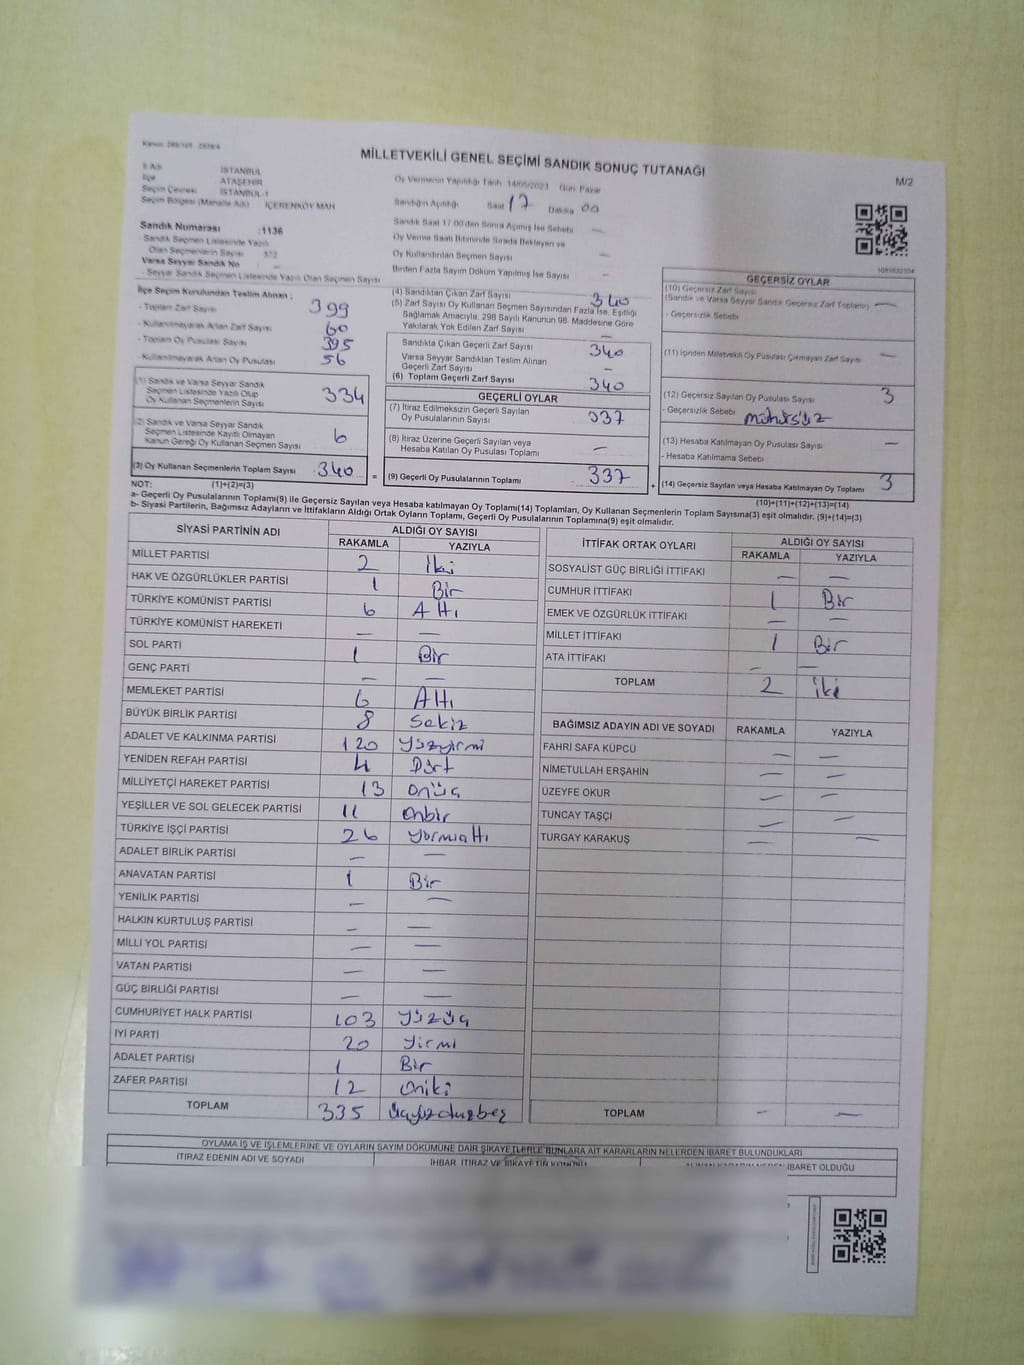 MİLLETVEKİLİ GENEL SEÇİMİ SANDIK SONUÇ TUTANAĞI
M/2
İl Adı : İSTANBUL
İlçe : ATAŞEHİR
Seçim Çevresi : İSTANBUL-1
Seçim Bölgesi (Mahalle Adı) : İÇERENKÖY MAH
Oy Vermenin Yapıldığı Tarih 14/05/2023 Gün Pazar
Sandığın Açıldığı Saat 17 Dakika 00
Sandık Saat 17.00'den Sonra Açılmış İse Sebebi —
Oy Verme Saati Bitiminde Sırada Bekleyen ve
Oy Kullandırılan Seçmen Sayısı —
Birden Fazla Sayım Döküm Yapılmış İse Sayısı —
Sandık Numarası :1136
- Sandık Seçmen Listesinde Yazılı
Olan Seçmenlerin Sayısı 372
Varsa Seyyar Sandık No
- Seyyar Sandık Seçmen Listesinde Yazılı Olan Seçmen Sayısı
İlçe Seçim Kurulundan Teslim Alınan ;
- Toplam Zarf Sayısı 399
- Kullanılmayarak Artan Zarf Sayısı 60
- Toplam Oy Pusulası Sayısı 395
- Kullanılmayarak Artan Oy Pusulası 56
(1) Sandık ve Varsa Seyyar Sandık
Seçmen Listesinde Yazılı Olup
Oy Kullanan Seçmenlerin Sayısı 334
(2) Sandık ve Varsa Seyyar Sandık
Seçmen Listesinde Kayıtlı Olmayan
Kanun Gereği Oy Kullanan Seçmen Sayısı 6
(3) Oy Kullanan Seçmenlerin Toplam Sayısı 340
(4) Sandıktan Çıkan Zarf Sayısı 340
(5) Zarf Sayısı Oy Kullanan Seçmen Sayısından Fazla İse, Eşitliği
Sağlamak Amacıyla, 298 Sayılı Kanunun 98. Maddesine Göre
Yakılarak Yok Edilen Zarf Sayısı —
Sandıkta Çıkan Geçerli Zarf Sayısı 340
Varsa Seyyar Sandıktan Teslim Alınan
Geçerli Zarf Sayısı —
(6) Toplam Geçerli Zarf Sayısı 340
GEÇERLİ OYLAR
(7) İtiraz Edilmeksizin Geçerli Sayılan
Oy Pusulalarının Sayısı 337
(8) İtiraz Üzerine Geçerli Sayılan veya
Hesaba Katılan Oy Pusulası Toplamı —
= (9) Geçerli Oy Pusulalarının Toplamı 337
GEÇERSİZ OYLAR
(10) Geçersiz Zarf Sayısı
(Sandık ve Varsa Seyyar Sandık Geçersiz Zarf Toplamı) —
- Geçersizlik Sebebi
(11) İçinden Milletvekili Oy Pusulası Çıkmayan Zarf Sayısı —
(12) Geçersiz Sayılan Oy Pusulası Sayısı 3
- Geçersizlik Sebebi mühürsüz
(13) Hesaba Katılmayan Oy Pusulası Sayısı —
- Hesaba Katılmama Sebebi
+ (14) Geçersiz Sayılan veya Hesaba Katılmayan Oy Toplamı 3
NOT: (1)+(2)=(3)
(10)+(11)+(12)+(13)=(14)
a- Geçerli Oy Pusulalarının Toplamı(9) ile Geçersiz Sayılan veya Hesaba katılmayan Oy Toplamı(14) Toplamları, Oy Kullanan Seçmenlerin Toplam Sayısına(3) eşit olmalıdır. (9)+(14)=(3)
b- Siyasi Partilerin, Bağımsız Adayların ve İttifakların Aldığı Ortak Oyların Toplamı, Geçerli Oy Pusulalarının Toplamına(9) eşit olmalıdır.
SİYASİ PARTİNİN ADI ALDIĞI OY SAYISI
RAKAMLA YAZIYLA
MİLLET PARTİSİ 2 İki
HAK VE ÖZGÜRLÜKLER PARTİSİ 1 Bir
TÜRKİYE KOMÜNİST PARTİSİ 6 Altı
TÜRKİYE KOMÜNİST HAREKETİ — —
SOL PARTİ 1 Bir
GENÇ PARTİ — —
MEMLEKET PARTİSİ 6 Altı
BÜYÜK BİRLİK PARTİSİ 8 Sekiz
ADALET VE KALKINMA PARTİSİ 120 Yüzyirmi
YENİDEN REFAH PARTİSİ 4 Dört
MİLLİYETÇİ HAREKET PARTİSİ 13 Onüç
YEŞİLLER VE SOL GELECEK PARTİSİ 11 Onbir
TÜRKİYE İŞÇİ PARTİSİ 26 Yirmialtı
ADALET BİRLİK PARTİSİ — —
ANAVATAN PARTİSİ 1 Bir
YENİLİK PARTİSİ — —
HALKIN KURTULUŞ PARTİSİ — —
MİLLİ YOL PARTİSİ — —
VATAN PARTİSİ — —
GÜÇ BİRLİĞİ PARTİSİ — —
CUMHURİYET HALK PARTİSİ 103 Yüzüç
İYİ PARTİ 20 Yirmi
ADALET PARTİSİ 1 Bir
ZAFER PARTİSİ 12 Oniki
TOPLAM 335 Üçyüzotuzbeş
İTTİFAK ORTAK OYLARI ALDIĞI OY SAYISI
RAKAMLA YAZIYLA
SOSYALİST GÜÇ BİRLİĞİ İTTİFAKI — —
CUMHUR İTTİFAKI 1 Bir
EMEK VE ÖZGÜRLÜK İTTİFAKI — —
MİLLET İTTİFAKI 1 Bir
ATA İTTİFAKI — —
TOPLAM 2 İki
BAĞIMSIZ ADAYIN ADI VE SOYADI RAKAMLA YAZIYLA
FAHRİ SAFA KÜPCÜ — —
NİMETULLAH ERŞAHİN — —
ÜZEYFE OKUR — —
TUNCAY TAŞÇI — —
TURGAY KARAKUŞ — —
TOPLAM — —
OYLAMA İŞ VE İŞLEMLERİNE VE OYLARIN SAYIM DÖKÜMÜNE DAİR ŞİKAYETLERLE BUNLARA AİT KARARLARIN NELERDEN İBARET BULUNDUKLARI
İTİRAZ EDENİN ADI VE SOYADI İHBAR, İTİRAZ VE ŞİKAYETİN KONUSU ALINAN KARARIN NEDEN İBARET OLDUĞU